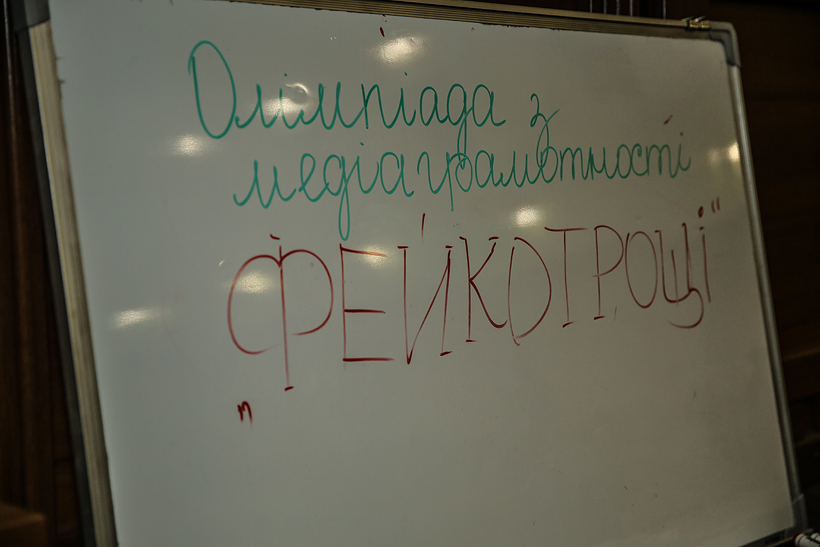 Олімпіада з
медіаграмотності
„ФЕЙКОТРОЩІ"